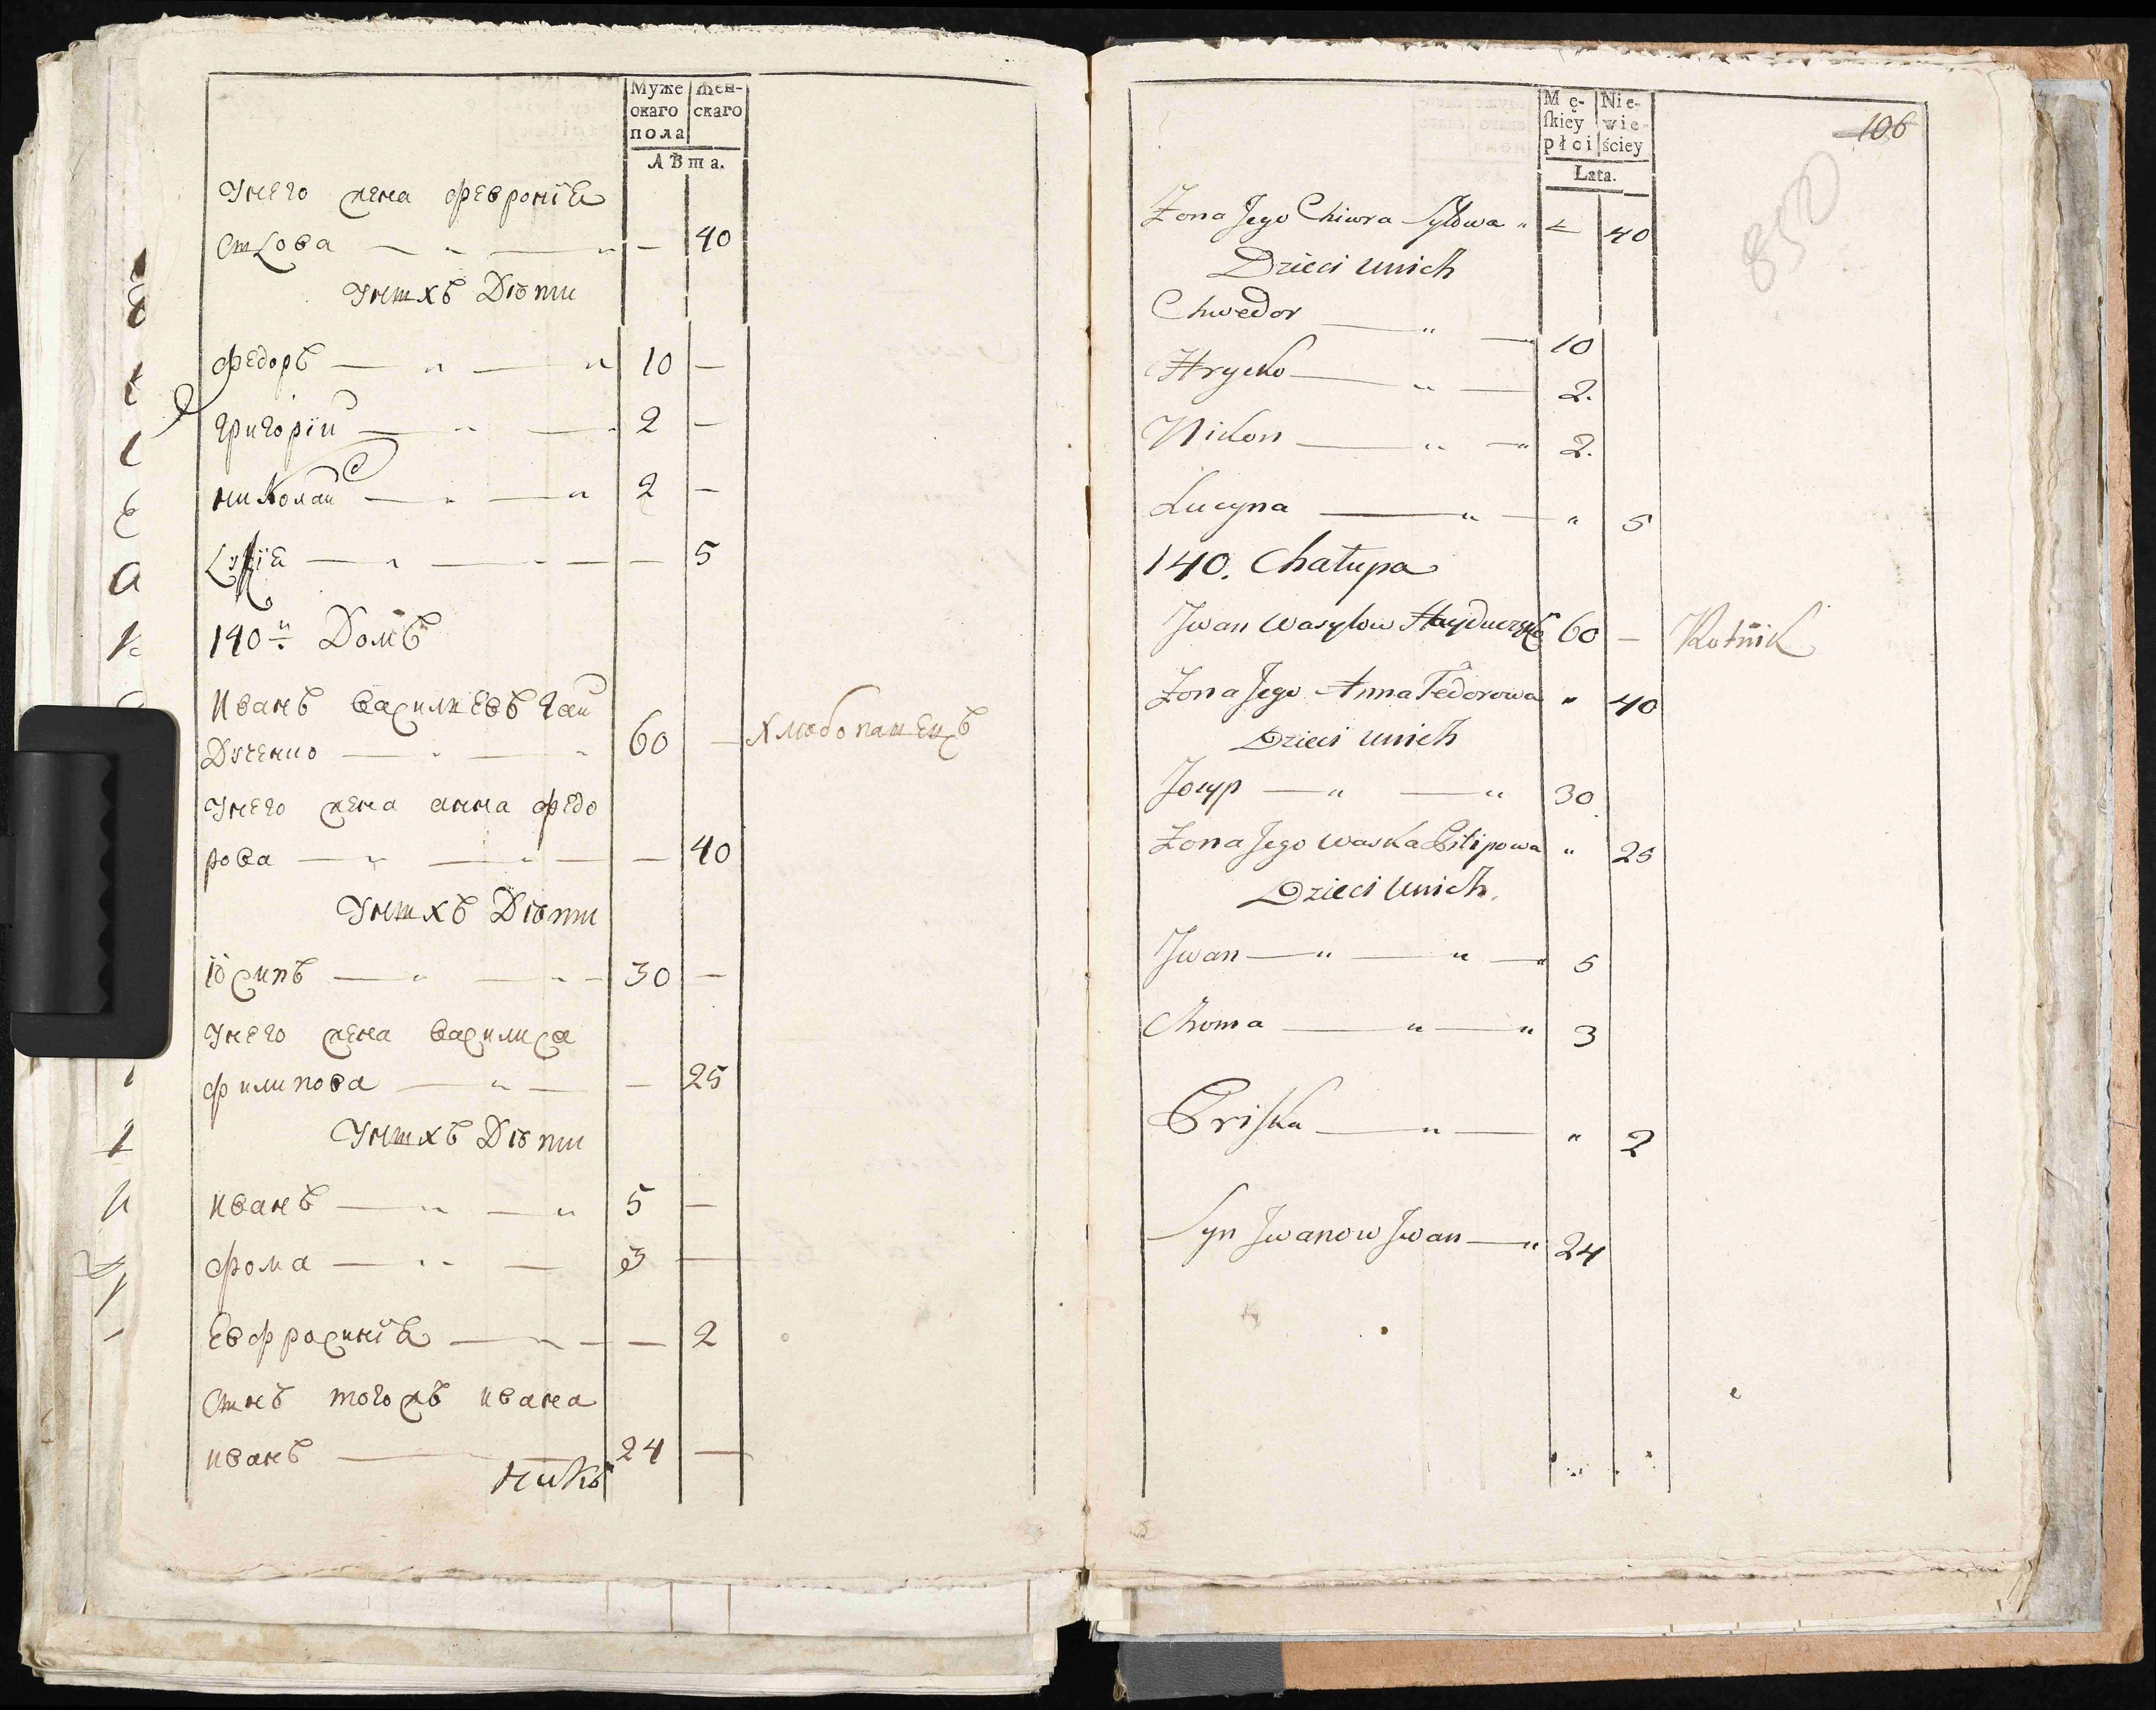 Муже
скаго
пола
Жен-
скаго
Лѣта.
Унего жена феврониѧ
— 40
Унихъ Дѣти
федоръ 10 —
григорiи 2 —
николаи 2 —
— 5
140й Домъ
Иванъ василиевъ гаи
дученко 60 — хлюбопашецъ
Унего жена анна федо
рова — 40
Унихъ Дѣти
iосипъ 30 —
Унего жена василиса
филипова — 25
Унихъ Дѣти
иванъ 5 —
фома 3 —
Евфросинiѧ — 2
Сынъ тогожъ ивана
иванъ 24 —
никъ
Mę-
ſkiey
płci
Nie-
wie-
ściey
Lata.
106
850
Zona Jego Chiwra Sylowa " 40
Dzieci unich
Chwedor 10
Hrycko 2.
Nikon 2.
Lucyna " 5
140. Chałupa
Jwan Wasylow Hayduczenko 60 — Rolnik
Zona Jego Anna Fedorowa " 40
Dzieci unich
Josyp 30
Zona Jego Waska Pilipowa " 25
Dzieci Unich.
Jwan 5
Choma 3
Priſka " 2
Syn Jwanow Jwan 24